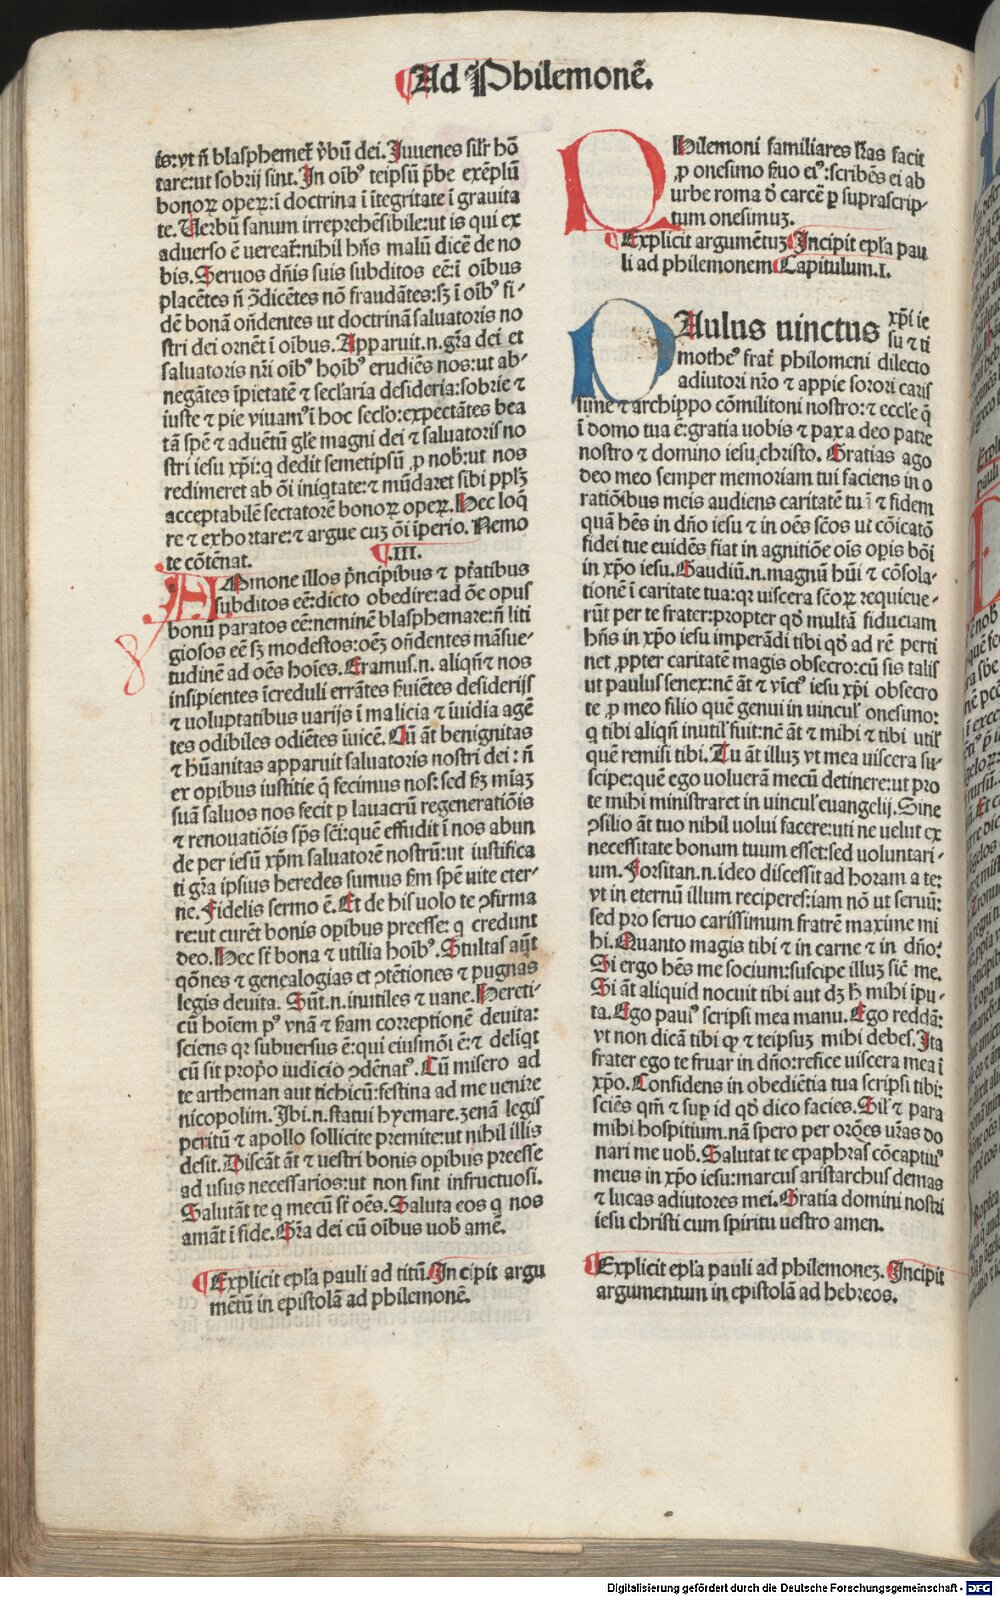 Ad Philemonē.
is: vt ñ blasphemet̃ v̓bū dei. Iuuenes silr̃ hō
tare: ut sobrij sint. In oīb⁹ teipsū p̄be exēplū
bonoꝝ opeꝝ: ī doctrina ī ītegritate ī grauita
te. Verbū sanum irreprehēsibile: ut is qui ex
aduerso ē uereat̃: nihil hñs malū dicē de no
bis. Seruos dñis suis subditos eē: ī oībus
placētes ñ ↄ̄dicētes nō fraudātes: sꝫ ī oīb⁹ fi⸗
dē bonā oñdentes ut doctrinā saluatoris no
stri dei ornēt ī oībus. Apparuit.n. gr̃a dei et
saluatoris nr̃i oīb⁹ hoīb⁹ erudiēs nos: ut ab⸗
negātes īpietatē ⁊ secl̓aria desideria: sobrie ⁊
iuste ⁊ pie viuam⁹ ī hoc secl̓o: expectātes bea
tā spē ⁊ aduētū gl̓e magni dei ⁊ saluatoris no
stri iesu xp̄i: q̇ dedit semetipsū ꝓ nob̃: ut nos
redimeret ab ōi iniq̇tate: ⁊ mūdaret sibi pplꝫ
acceptabilē sectatorē bonoꝝ opeꝝ. Hec loq̄
re ⁊ exhortare: ⁊ argue cuꝫ ōi īperio. Nemo
te cōtēnat. ¶.III.
ADmone illos p̓ncipibus ⁊ pt̃atibus
subditos eē: dicto obedire: ad ōe opus
bonū paratos eē: neminē blasphemare: ñ liti
giosos eē sꝫ modestos: oēꝫ oñdentes māsue⸗
tudinē ad oēs hoīes. Eramus.n. aliqñ ⁊ nos
insipientes īcreduli errātes ẜuiētes desiderijs
⁊ voluptatibus uarijs ī malicia ⁊ īuidia agē
tes odibiles odiētes īuicē. Cū āt benignitas
⁊ hūanitas apparuit saluatoris nostri dei: ñ
ex opibus iustitie q̄ fecimus nos: sed ẜꝫ mīaꝫ
suā saluos nos fecit p lauacrū regeneratiōis
⁊ renouatiōis sp̄s sc̄i: quē effudit ī nos abun
de per iesū xp̄m saluatorē nostrū: ut iustifica
ti gr̃a ipsius heredes sumus ẜm spē uite eter⸗
ne. Fidelis sermo ē. Et de his uolo te ↄ̄firma
re: ut curēt bonis opibus preesse: q̇ credunt
deo. Hec st̃ bona ⁊ utilia hoīb⁹. Stultas aūt
q̄ōnes ⁊ genealogias et ↄ̄tētiones ⁊ pugnas
legis deuita. Sūt.n. inutiles ⁊ uane. Hereti⸗
cū hoīem p⁹ vnā ⁊ ẜam correptionē deuita:
sciens qꝛ subuersus ē: qui eiusmōi ē: ⁊ deliq̄t
cū sit prop̓o iudicio ↄ̄dēnat⁹. Cū misero ad
te artheman aut tichicū: festina ad me uenire
nicopolim. Ibi.n. statui hyemare. zenā legis
peritū ⁊ apollo sollicite premite: ut nihil illis
desit. Discāt āt ⁊ uestri bonis opibus preesse
ad usus necessarios: ut non sint infructuosi.
Salutāt te q̇ mecū st̃ oēs. Saluta eos q̇ nos
amāt ī fide. Gr̃a dei cū oībus uob̃ amē.
¶Explicit epl̓a pauli ad titū. Incipit argu
mētū in epistolā ad philemonē.
PHilemoni familiares lr̃as facit
ꝓ onesimo ẜuo ei⁹: scribēs ei ab
urbe roma ď carcē ꝑ suprascrip⸗
tum onesimuꝫ.
¶Explicit argumētuꝫ Incipit epl̓a pau
li ad philemonem Capitulum.I.
PAulus uinctus xp̄i ie
su ⁊ ti
mothe⁹ frat̃ philomeni dilecto
adiutori nr̃o ⁊ appie sorori caris
sime ⁊ archippo cōmilitoni nostro: ⁊ eccl̓e q̄
ī domo tua ē: gratia uobis ⁊ pax a deo patre
nostro ⁊ domino iesu christo. Gratias ago
deo meo semper memoriam tui faciens in o
ratiōibus meis audiens caritatē tuā ⁊ fidem
quā hēs in dño iesu ⁊ in oēs sc̄os ut cōicatō
fidei tue euidēs fiat in agnitiōe oīs opis bōi
in xp̄o iesu. Gaudiū.n. magnū hūi ⁊ cōsola⸗
tionē ī caritate tua: qꝛ uiscera sc̄oꝝ requieue⸗
rūt per te frater: propter qď multā fiduciam
hñs in xp̄o iesu imperādi tibi qď ad rē perti
net ꝓpter caritatē magis obsecro: cū sis talis
ut paulus senex: nē āt ⁊ vīct⁹ iesu xp̄i obsecro
te ꝓ meo filio quē genui in uincul̓ onesimo:
q̇ tibi aliqñ inutil̓ fuit: nē āt ⁊ mihi ⁊ tibi util̓
quē remisi tibi. Tu āt illuꝫ vt mea uiscera su⸗
scipe: quē ego uoluerā mecū detinere: ut pro
te mihi ministraret in uincul̓ euangelij. Sine
ↄ̄silio āt tuo nihil uolui facere: uti ne uelut ex
necessitate bonum tuum esset: sed uoluntari⸗
um. Forsitan.n. ideo discessit ad horam a te:
vt in eternū illum reciperes: iam nō ut seruū:
sed pro seruo carissimum fratrē maxime mi
hi. Quanto magis tibi ⁊ in carne ⁊ in dño:
Si ergo hēs me socium: suscipe illuꝫ sic̄ me.
Si āt aliquid nocuit tibi aut dꝫ h̄ mihi īpu⸗
ta. Ego paul⁹ scripsi mea manu. Ego reddā:
vt non dicā tibi qꝙ ⁊ teipsuꝫ mihi debes. Ita
frater ego te fruar in dño: refice uiscera mea ī
xp̄o. Confidens in obediētia tua scripsi tibi:
sciēs qm̄ ⁊ sup id qď dico facies. Sil̓ ⁊ para
mihi hospitium. nā spero per orōes ur̃as do
nari me uob̃. Salutat te epaphras cōcaptiu⁹
meus in xp̄o iesu: marcus aristarchus demas
⁊ lucas adiutores mei. Gratia domini nostri
iesu christi cum spiritu uestro amen.
¶Explicit epl̓a pauli ad philemoneꝫ. Incipit
argumentum in epistolā ad hebreos.
Digitalisierung gefördert durch die Deutsche Forschungsgemeinschaft - DFG